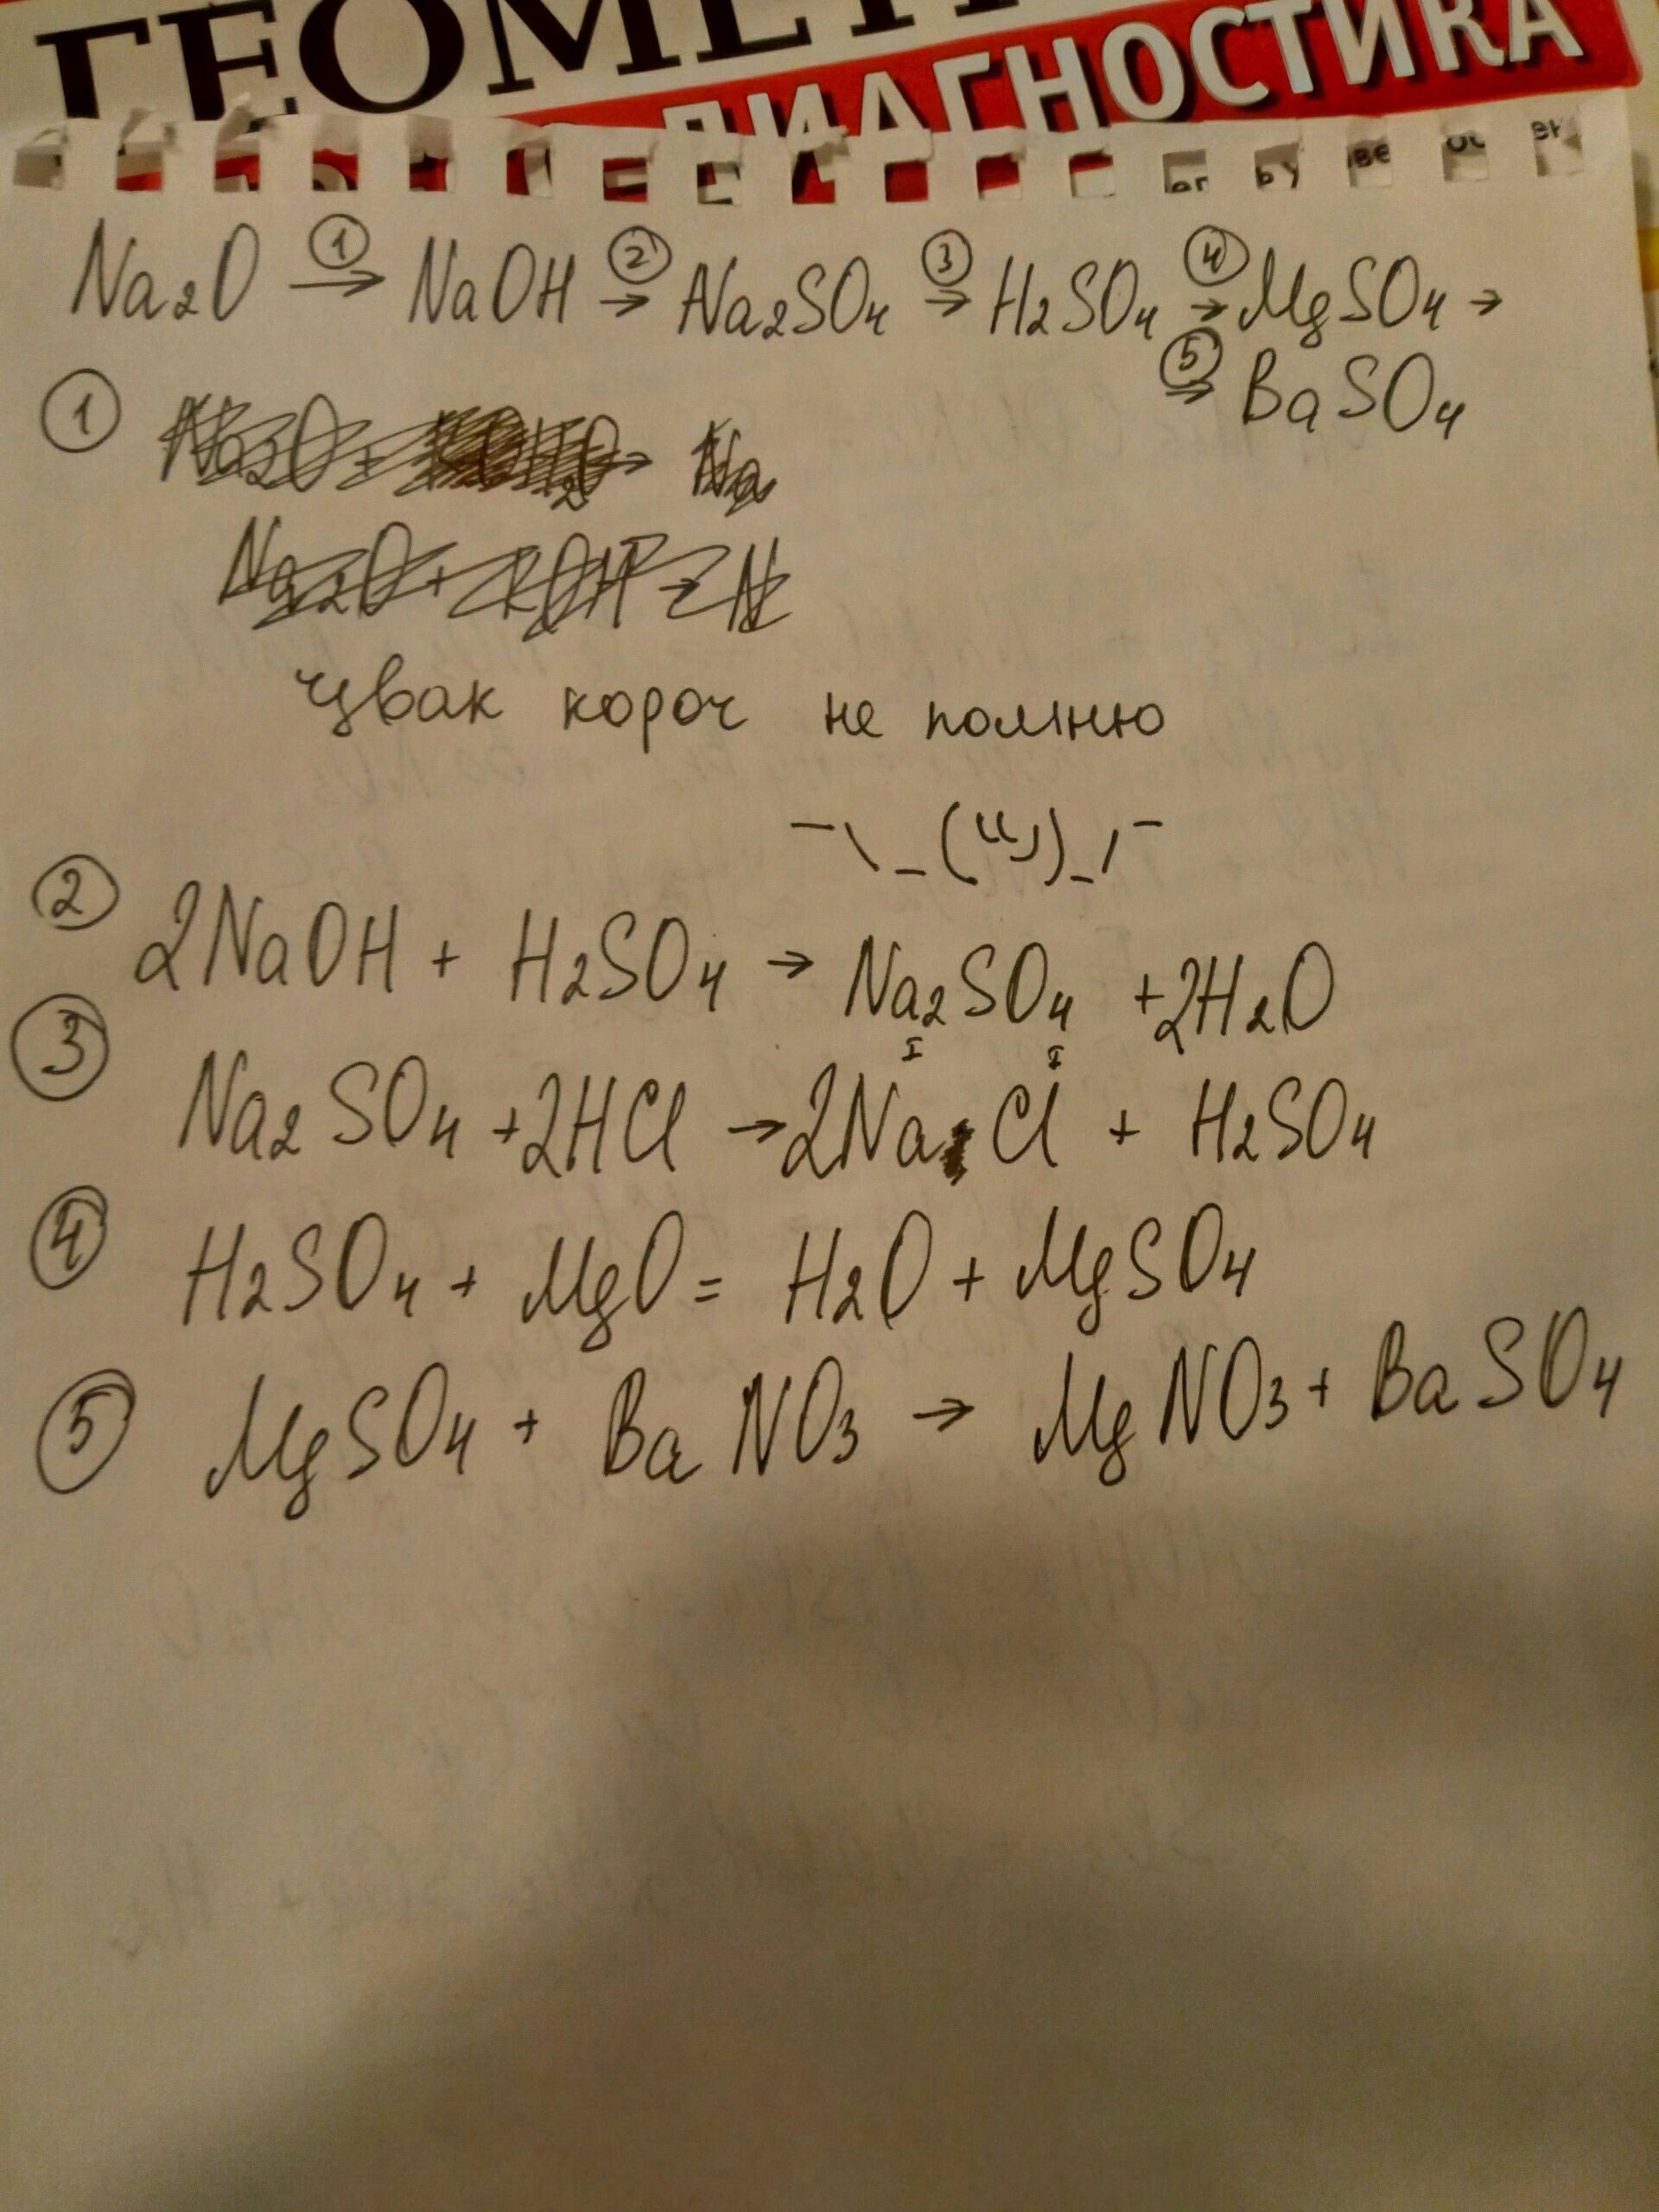 ГЕОМЕТ
ДИАГНОСТИКА
Na₂O ①→ NaOH ②→ Na₂SO₄ ③→ H₂SO₄ ④→ MgSO₄ →
⑤→ BaSO₄
①
чвак короч не помню
¯\_(ツ)_/¯
② 2NaOH + H₂SO₄ → Na₂SO₄ +2H₂O
③ Na₂SO₄ +2HCl → 2NaCl + H₂SO₄
I I
④ H₂SO₄ + MgO = H₂O + MgSO₄
⑤ MgSO₄ + Ba NO₃ → Mg NO₃ + BaSO₄